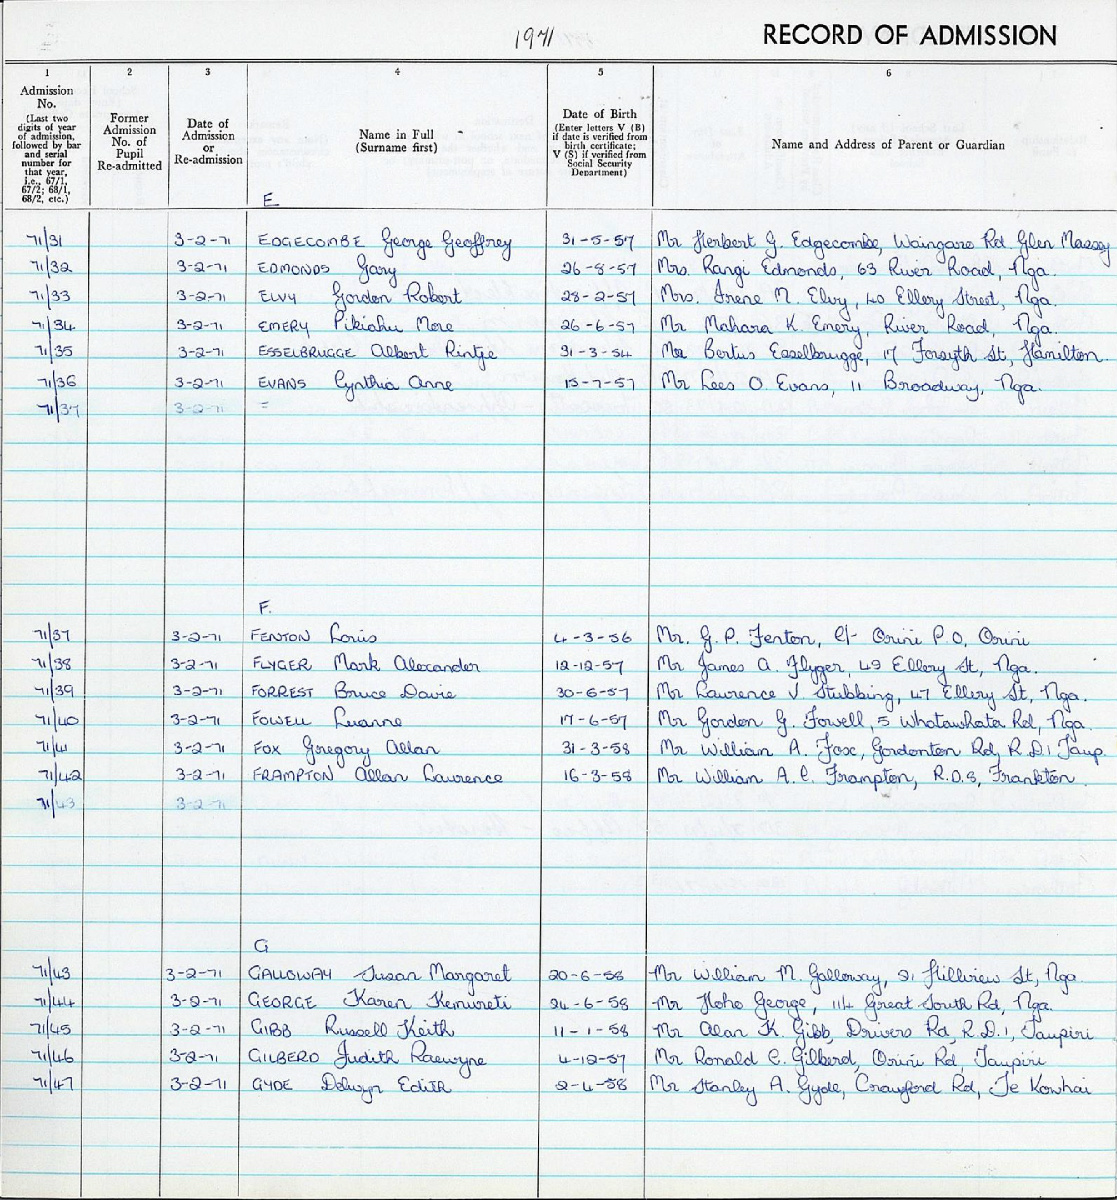 1971 RECORD OF ADMISSION
1 2 3 4 5 6
Admission No. (Last two digits of year of admission, followed by bar and serial number for that year, i.e., 67/1, 67/2; 68/1, 68/2, etc.)
Former Admission No. of Pupil Re-admitted
Date of Admission or Re-admission
Name in Full (Surname first)
Date of Birth (Enter letters V (B) if date is verified from birth certificate; V (S) if verified from Social Security Department)
Name and Address of Parent or Guardian
E
71/31 3-2-71 EDGECOMBE George Geoffrey 31-5-57 Mr Herbert G. Edgecombe, Waingaro Rd. Glen Massey
71/32 3-2-71 EDMONDS Gary 26-8-57 Mrs. Rangi Edmonds, 63 River Road, Nga.
71/33 3-2-71 ELVY Gordon Robert 28-2-57 Mrs. Irene M. Elvy, 40 Ellery Street, Nga.
71/34 3-2-71 EMERY Pikiahu Mere 26-6-57 Mr Mahara K. Emery, River Road, Nga.
71/35 3-2-71 ESSELBRUGGE Albert Rintje 31-3-54 Mr Bertus Esselbrugge, 17 Forsyth St, Hamilton
71/36 3-2-71 EVANS Cynthia Anne 15-7-57 Mr Lees O. Evans, 11 Broadway, Nga.
71/37 3-2-71 =
F.
71/37 3-2-71 FENTON Louis 4-3-56 Mr. G. P. Fenton, C/- Orini P.O, Orini
71/38 3-2-71 FLYGER Mark Alexander 12-12-57 Mr James A. Flyger, 49 Ellery St, Nga.
71/39 3-2-71 FORREST Bruce Davie 30-6-57 Mr Laurence V. Stubbing, 47 Ellery St, Nga.
71/40 3-2-71 FOWELL Luanne 17-6-57 Mr Gordon G. Fowell, 5 Whatawhata Rd, Nga
71/41 3-2-71 FOX Gregory Allan 31-3-58 Mr William A. Fox, Gordonton Rd, R.D.1 Taup.
71/42 3-2-71 FRAMPTON Allan Laurence 16-3-58 Mr William A. C. Frampton, R.D.8, Frankton
71/43 3-2-71
G
71/43 3-2-71 GALLOWAY Susan Margaret 20-6-58 Mr William M. Galloway, 21 Hillview St, Nga
71/44 3-2-71 GEORGE Karen Kemureti 24-6-58 Mr Hoho George, 114 Great South Rd, Nga
71/45 3-2-71 GIBB Russell Keith 11-1-58 Mr Alan K. Gibb, Drivers Rd, R.D.1, Taupiri
71/46 3-2-71 GILBERD Judith Raewyne 4-12-57 Mr Ronald C. Gilberd, Orini Rd, Taupiri
71/47 3-2-71 GYDE Delwyn Edith 2-4-58 Mr Stanley A. Gyde, Crawford Rd, Te Kowhai